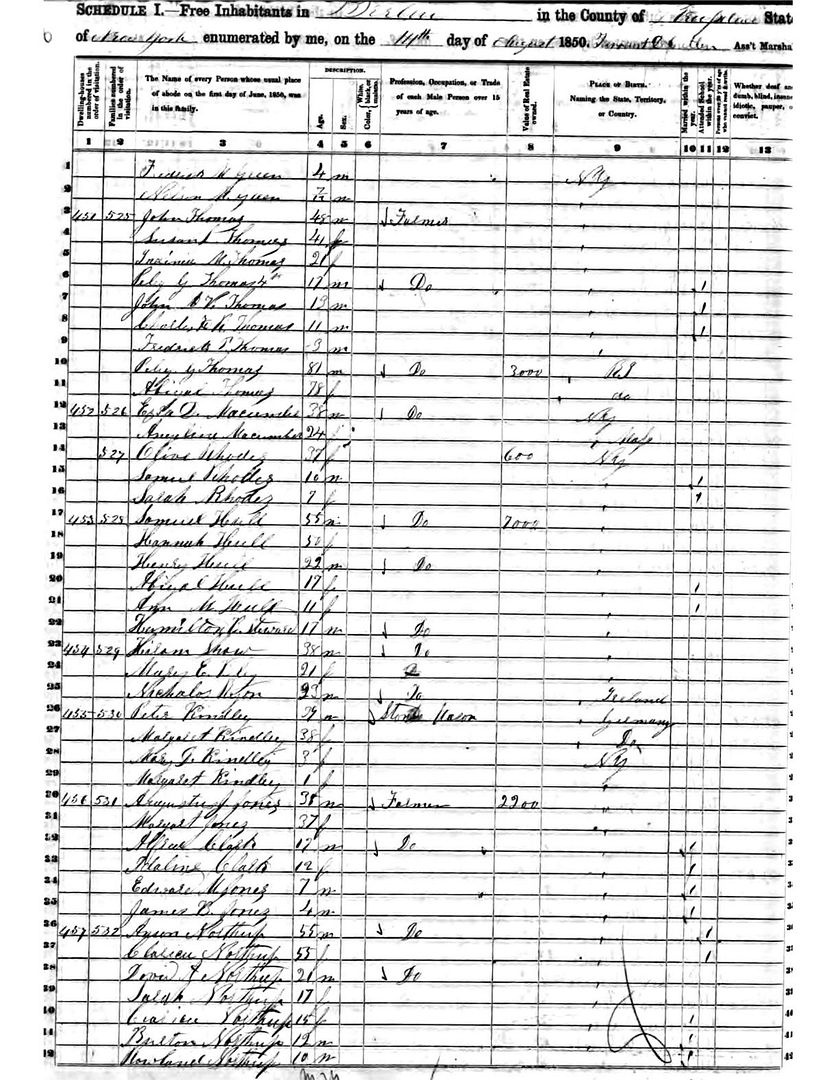 SCHEDULE I.—Free Inhabitants in Berlin in the County of Rensselaer State
of New York enumerated by me, on the 14th day of August 1850. Ass't Marshal
Dwelling-house numbered in the order of visitation.
Families numbered in the order of visitation.
The Name of every Person whose usual place of abode on the first day of June, 1850, was in this family.
DESCRIPTION.
Age.
Sex.
Color, White, black, or mulatto.
Profession, Occupation, or Trade of each Male Person over 15 years of age.
Value of Real Estate owned.
PLACE OF BIRTH.
Naming the State, Territory, or Country.
Married within the year.
Attended School within the year.
Persons over 20 y'rs of age who cannot read & write.
Whether deaf and dumb, blind, insane, idiotic, pauper, or convict.
1 2 3 4 5 6 7 8 9 10 11 12 13
1 Frederick M Green 4 m NY
2 Nelson M Green 7/12 m
3 451 525 John Thomas 45 m Farmer
4 Susan Thomas 41 f
5 M Thomas 21 f
6 Peleg G Thomas 17 m Do
7 John Thomas 13 m
8 Charles Thomas 11 m
9 Frederick T Thomas 3 m
10 Peleg G Thomas 81 m Do 3000 RI
11 Abigal Thomas 78 f do
12 452 526 Ezra D. Macumber 38 m Do NY
13 Angeline Macumber 24 f Mass
14 527 Olive Rhodes 37 f 600 NY
15 Samuel Rhodes 10 m
16 Sarah Rhodes 7 f
17 453 528 Samuel Hull 55 m Do 7000
18 Hannah Hull 50 f
19 Henry Hull 22 m Do
20 Abigal Hull 17 f
21 Ann M Hull 11 f
22 Hamilton Steward 17 m Do
23 454 529 Hiram Shaw 38 m Do
24 Mary E 21 f
25 Nicholas 23 m Do Ireland
26 455 530 Peter Kindley 39 m Stone Mason Germany
27 Margaret Kindley 38 f Do
28 Mary G. Kindley 3 f NY
29 Margaret Kindley 1 f
30 456 531 Augustus J Jones 38 m Farmer 2200
31 Margaret Jones 37 f
32 Alfred Clark 17 m Do
33 Adaline Clark 12 f
34 Edward M Jones 7 m
35 James B. Jones 4 m
36 457 532 Northrup 55 m Do
37 Northrup 55 f
38 David A Northrup 21 m Do
39 Sarah Northrup 17 f
40 Northrup 15 f
41 Burton Northrup 12 m
42 Rowland Northrup 10 m